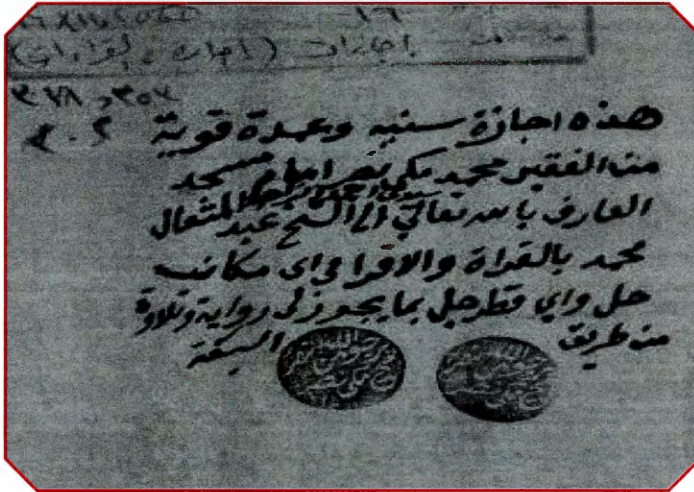 ١٦
اجازات (اجازة بالقراءات)
٣٠٧ و ٢٧٨
٢٠٢
هذه اجازة سنيه وعمدة قوية
من الفقير محمد مكي نصر امام مسجد
سيدى احمد
العارف بالله تعالى الى الشيخ عبد المتعال
محمد بالقراة والاقرا فى اى مكان
حل واي قطر جل بما يجوز لى رواية وتلاوة
من طريق السبعة